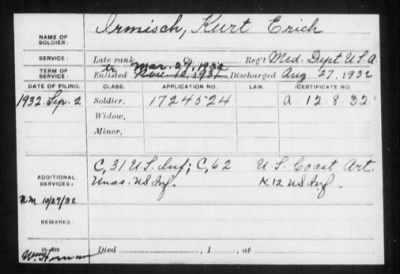 NAME OF SOLDIER: Irmisch, Kurt Erich
SERVICE: Late rank Reg't Med. Dept U.S.A.
TERM OF SERVICE: Enlisted Mar. 1932 Discharged Aug 27, 1932
DATE OF FILING. CLASS. APPLICATION NO. LAW. CERTIFICATE NO.
1932 Sep. 2 Soldier, 1724524 A. 12 8 32
Widow,
Minor,
ADDITIONAL SERVICES: C, 31 U.S. Inf; C, 62 U.S. Coast Art.
Unas. US Inf. K 12 US Inf.
REMARKS:
Died , 1 , at